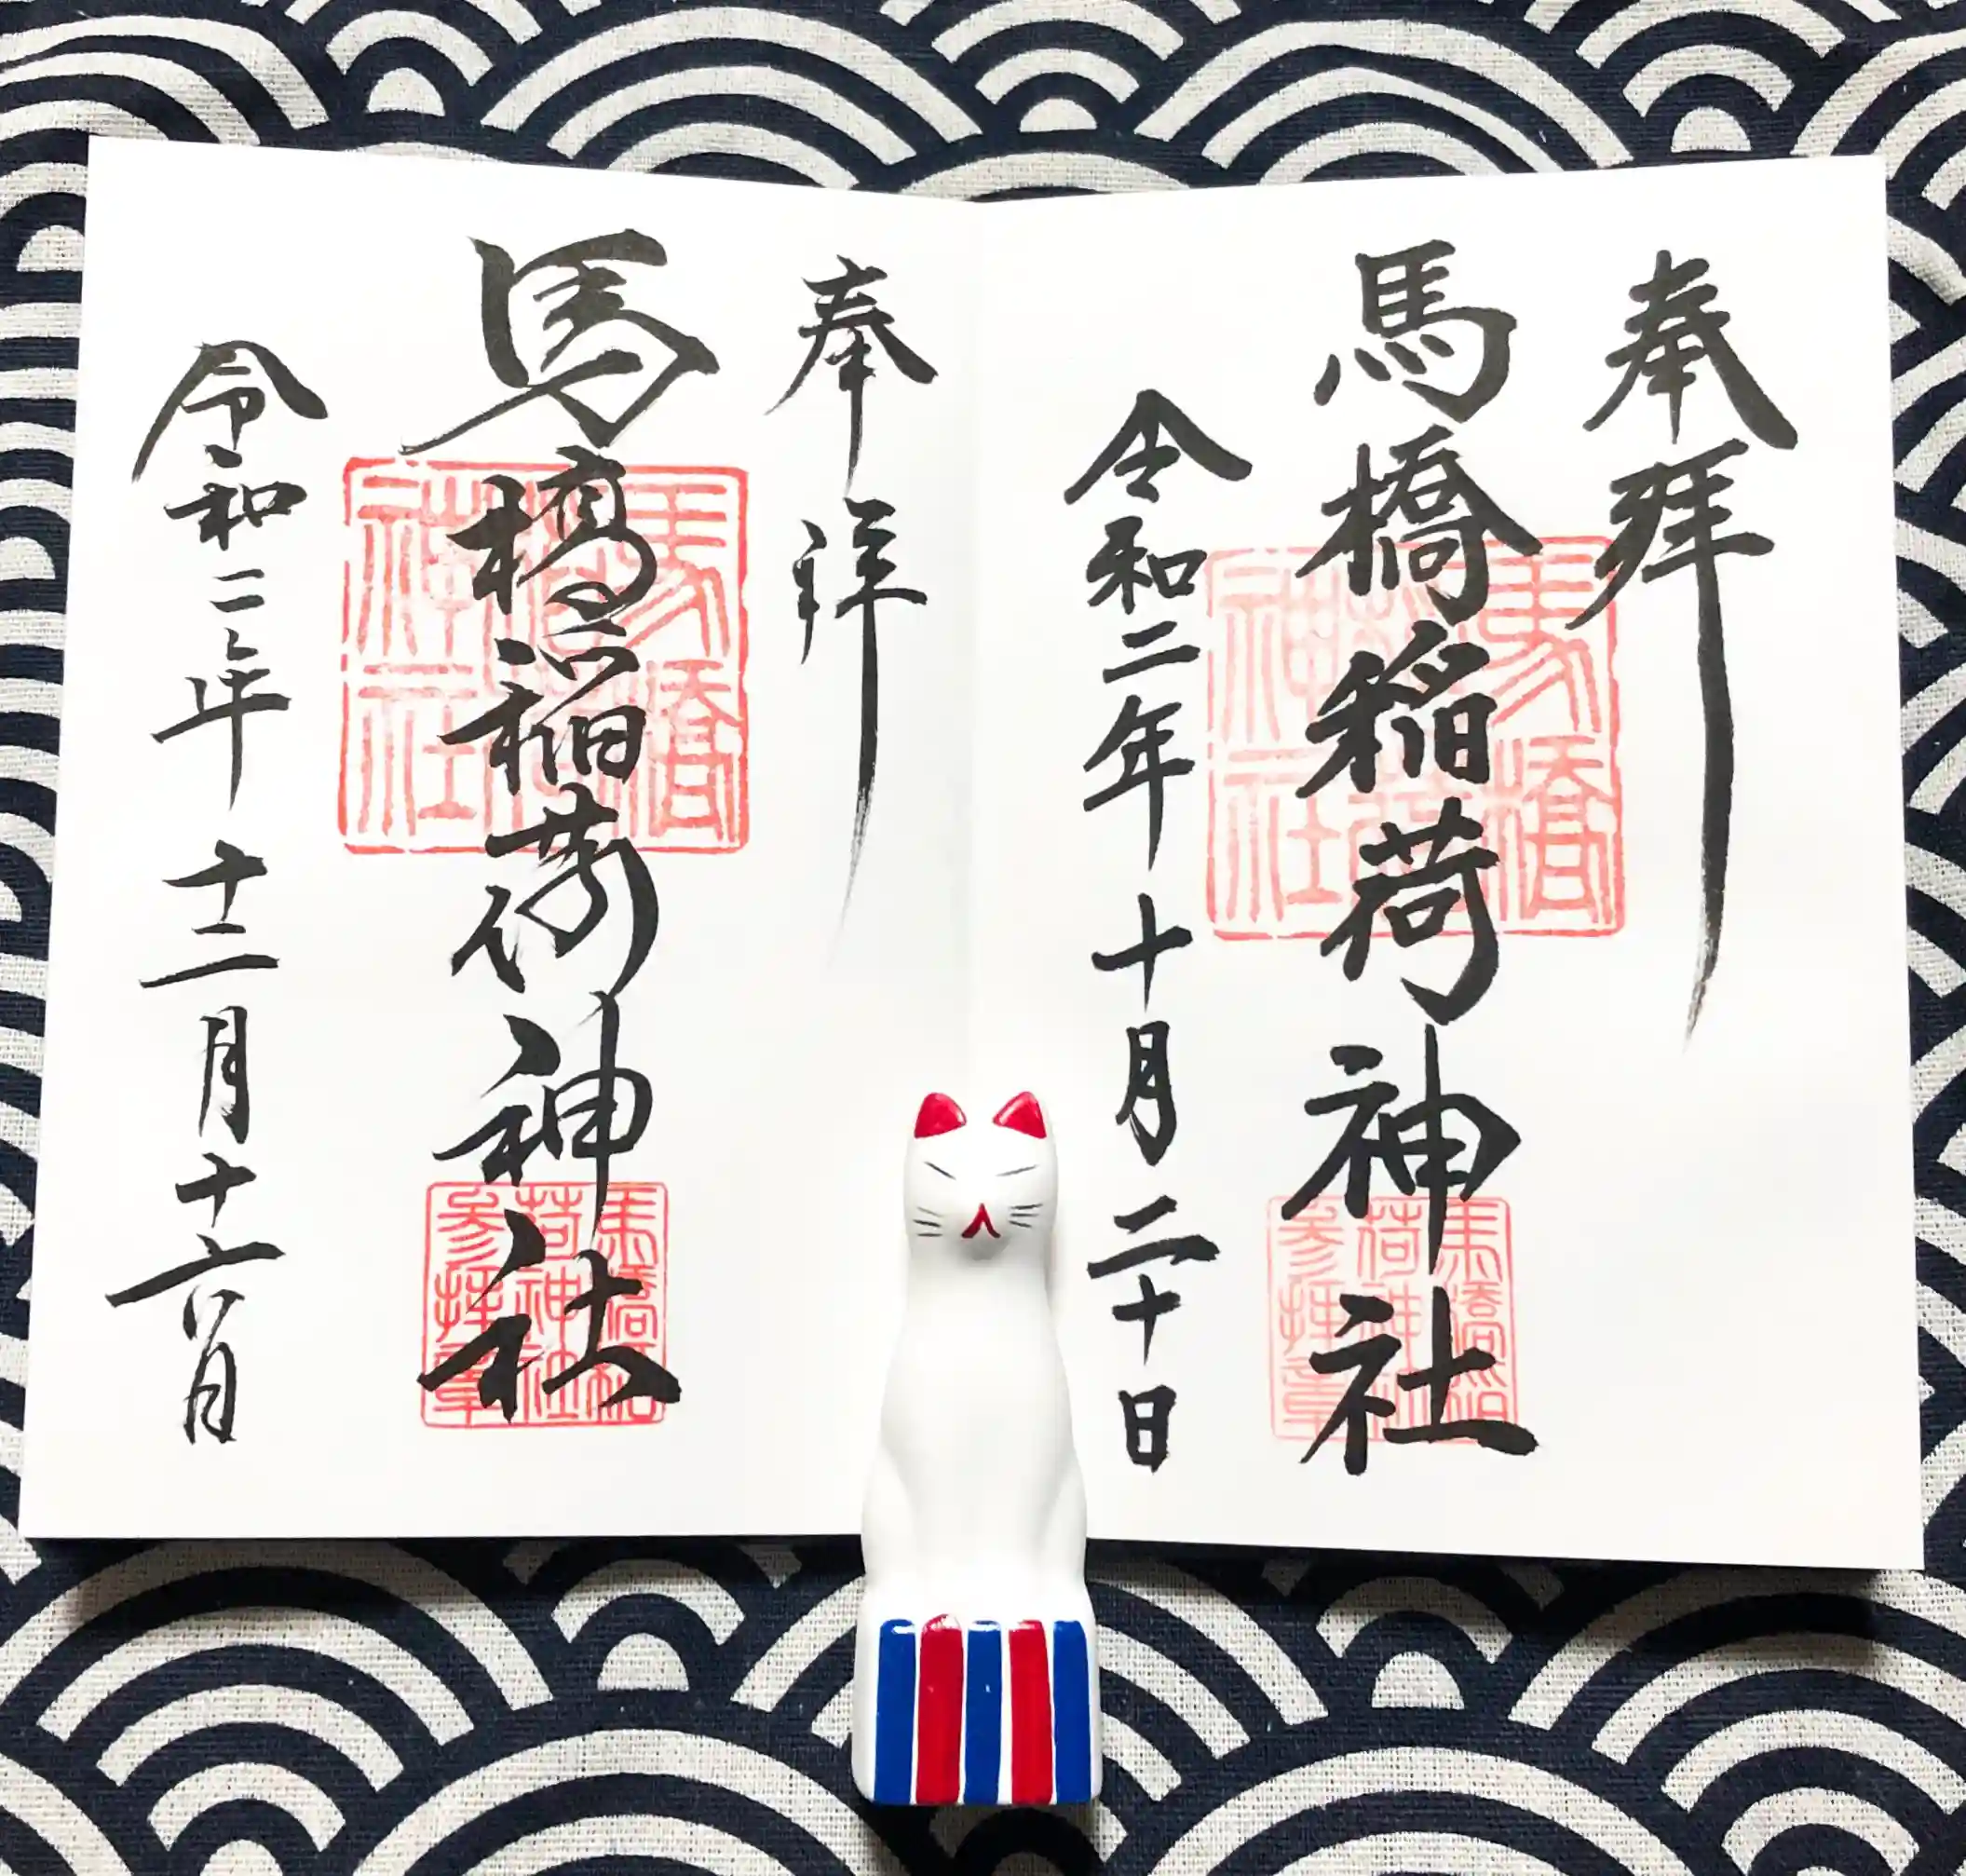 奉拝
馬橋稲荷神社
令和二年十月二十日
馬橋
稲荷
神社
馬橋稲
荷神社
参拝章
奉拝
馬橋稲荷神社
令和二年十二月十六日
馬橋
稲荷
神社
馬橋稲
荷神社
参拝章